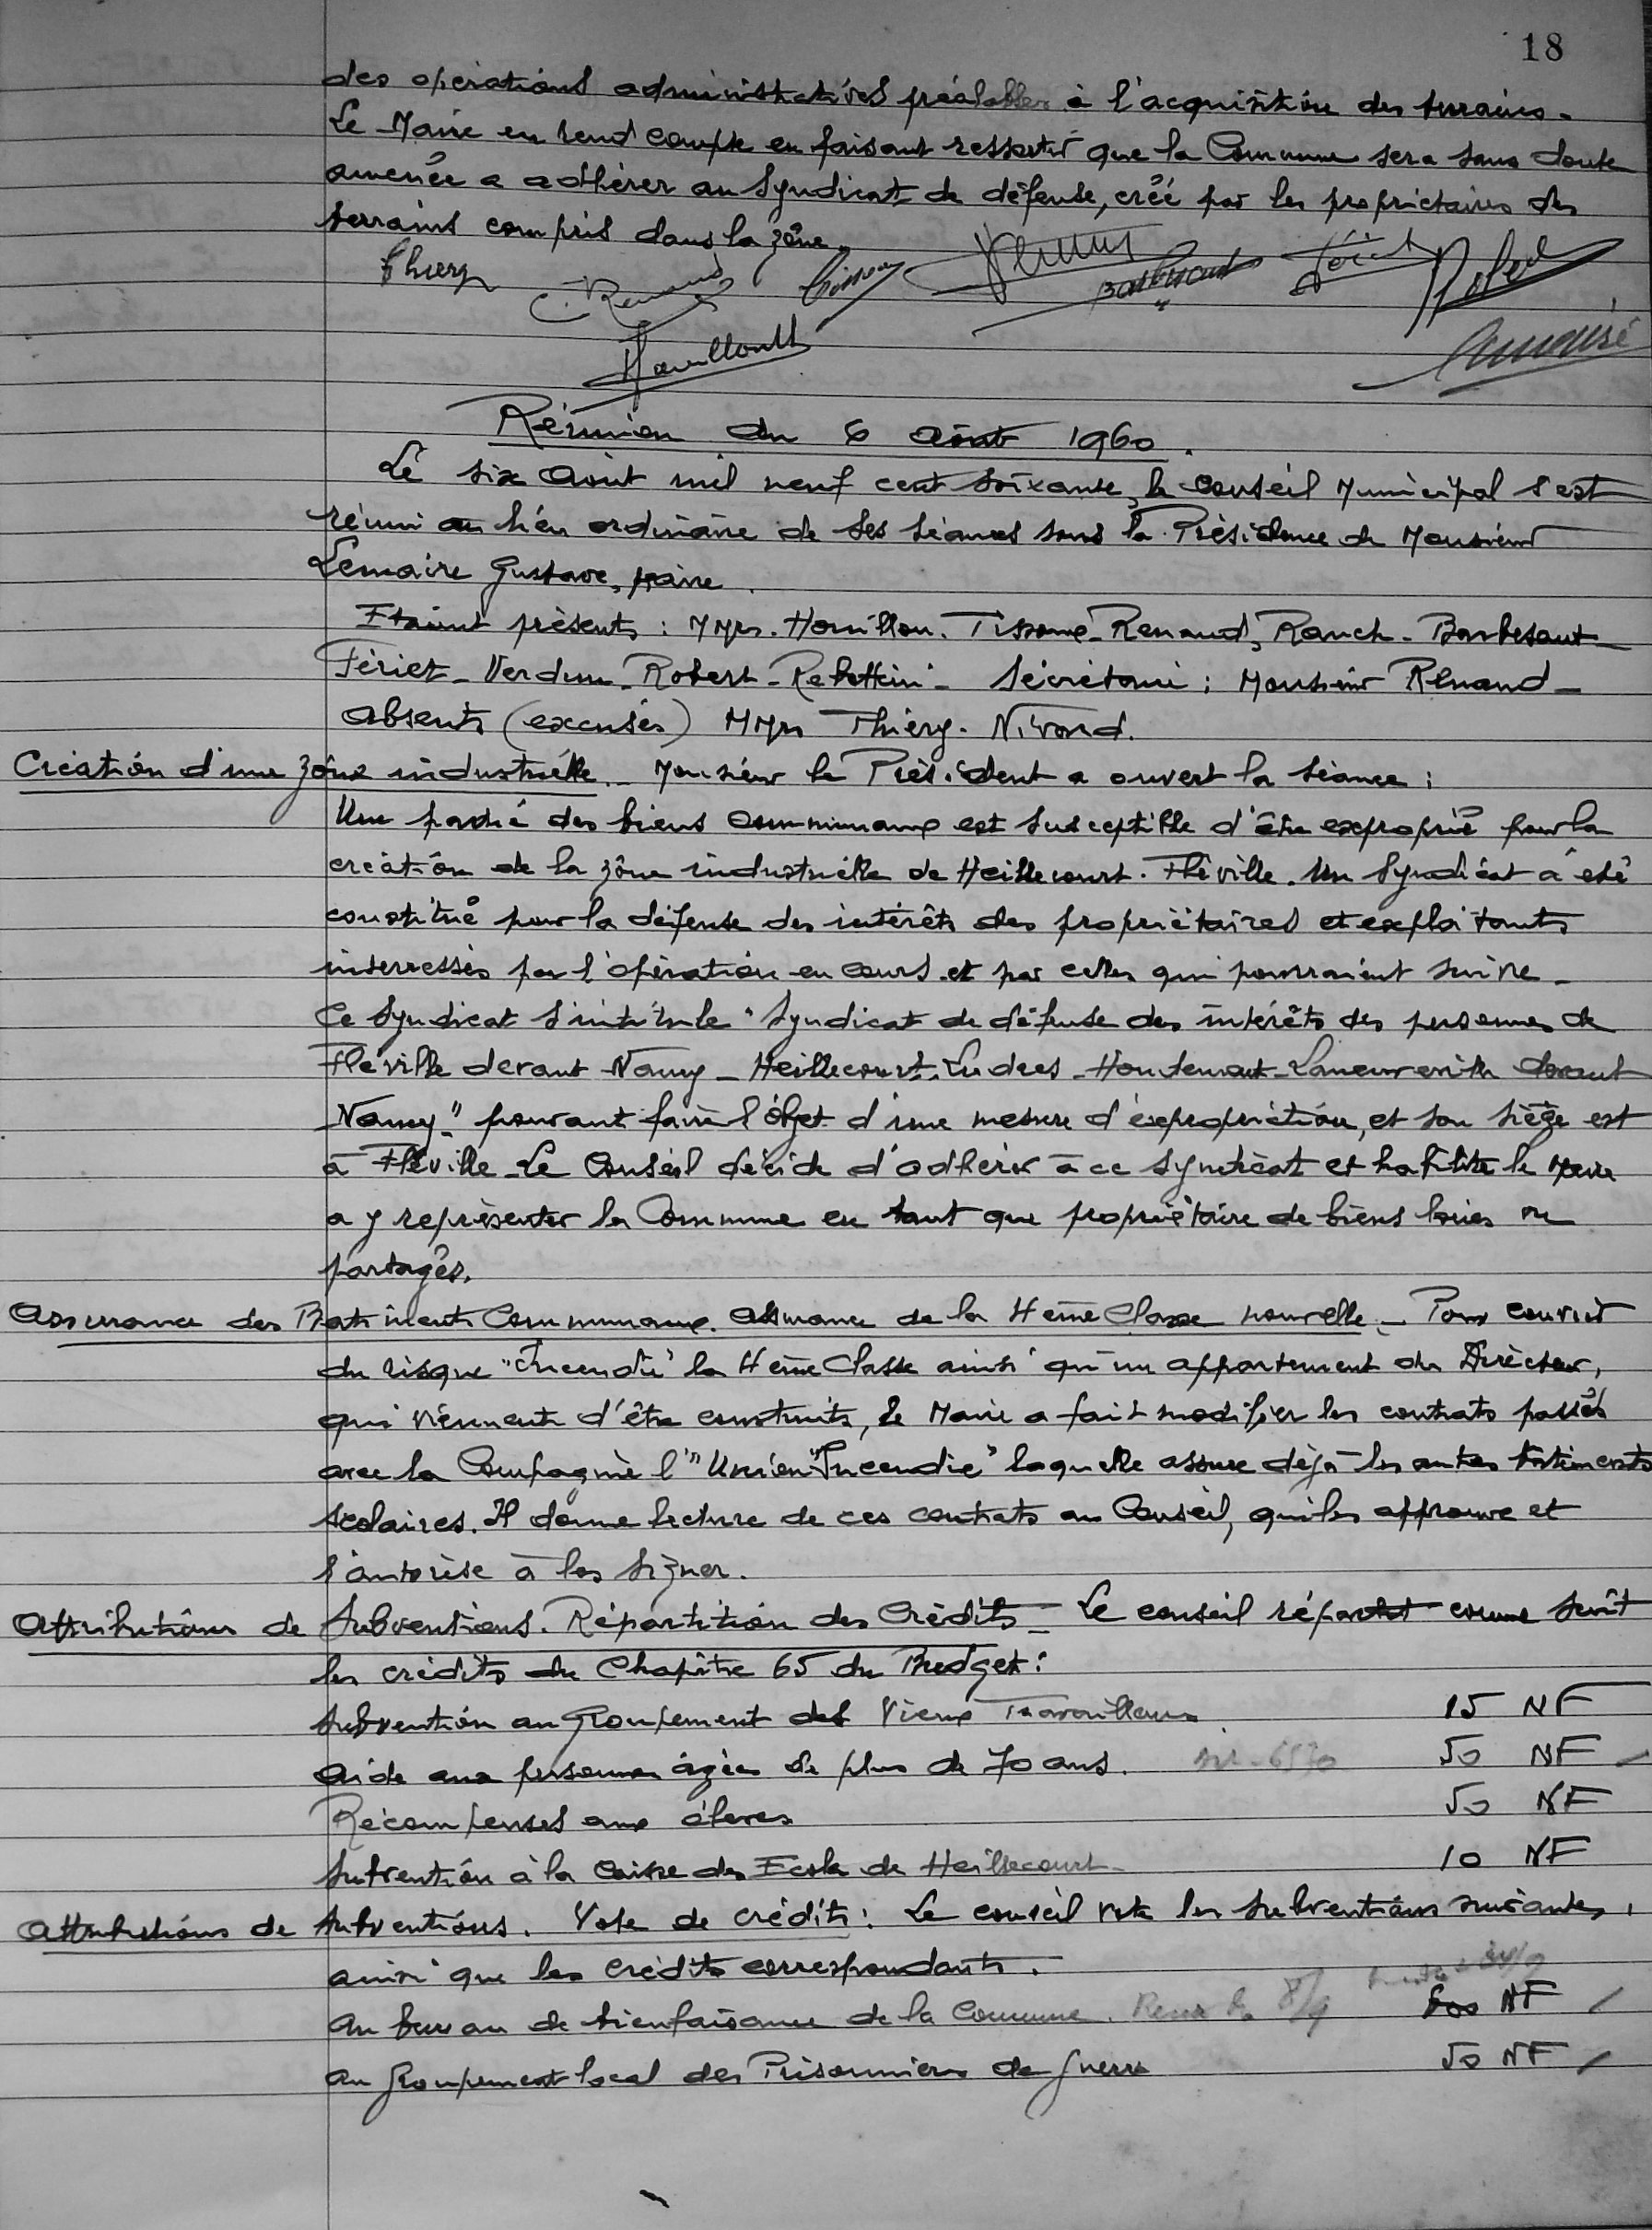 18
des opérations administratives préalables à l'acquisition des terrains.
Le Maire en rend compte en faisant ressortir que la Commune sera sans doute
amenée a adhérer au Syndicat de défense, créé par les propriétaires des
terrains compris dans la zône.
Thiery
C. Renaud
Barbesant
Fériet
Robert
Réunion du 6 Août 1960.
Le six Août mil neuf cent soixante, le Conseil Municipal s'est
réuni au lieu ordinaire de ses séances sous la Présidence de Monsieur
Lemaire Gustave, Maire.
Etaient présents : MMrs. Houillon. Tissoné - Renaud, Rauch - Barbesant -
Fériet - Verdun - Robert - Rebettini - Sécrétaire : Monsieur Renaud -
Absents (excusés) MMrs Thiéry - Nivord.
Création d'une zône industrielle. - Monsieur le Président a ouvert la séance :
Une partie des biens communaux est susceptible d'être exproprié pour la
création de la zône industrielle de Heillecourt. Fléville. Un Syndicat a été
constitué pour la défense des intérêts des propriétaires et exploitants
interressés par l'opération en cours et par celles qui pourraient suivre -
Ce Syndicat s'intitule "Syndicat de défense des intérêts des personnes de
Fléville devant Nancy - Heillecourt - Ludres - Houdemont - Laneuveville devant
Nancy" pouvant faire l'objet d'une mesure d'expropriation, et son siège est
à Fléville - Le Conseil décide d'adhérer à ce syndicat et habilite le Maire
a y représenter la Commune en tant que propriétaire de biens loués ou
partagés.
Assurance des Batiments Communaux. Assurance de la 4ème Classe nouvelle - Pour couvrir
du risque "Incendie" la 4ème Classe ainsi qu'un appartement du Directeur,
qui viennent d'être construits, le Maire a fait modifier les contrats passés
avec la Compagnie l'"Union Incendie" laquelle assure déjà les autres batiments
scolaires. Il donne lecture de ces contrats au Conseil, qui les approuve et
l'autorise à les signer.
Attributions de Subventions. Répartition des Crédits - Le conseil répartit comme suit
les crédits du Chapître 65 du Budget :
Subvention au Groupement des Vieux Travailleurs. 15 NF
Aide aux personnes âgées de plus de 70 ans. 50 NF
Récompenses aux élèves 50 NF
Subvention à la Caisse des Ecoles de Heillecourt - 10 NF
Attributions de Subventions. Vote de crédits : Le conseil vote les subventions suivantes,
ainsi que les crédits correspondants.
Au bureau de bienfaisance de la Commune. 8/9 NF
Au Groupement local des Prisonniers de guerre 50 NF